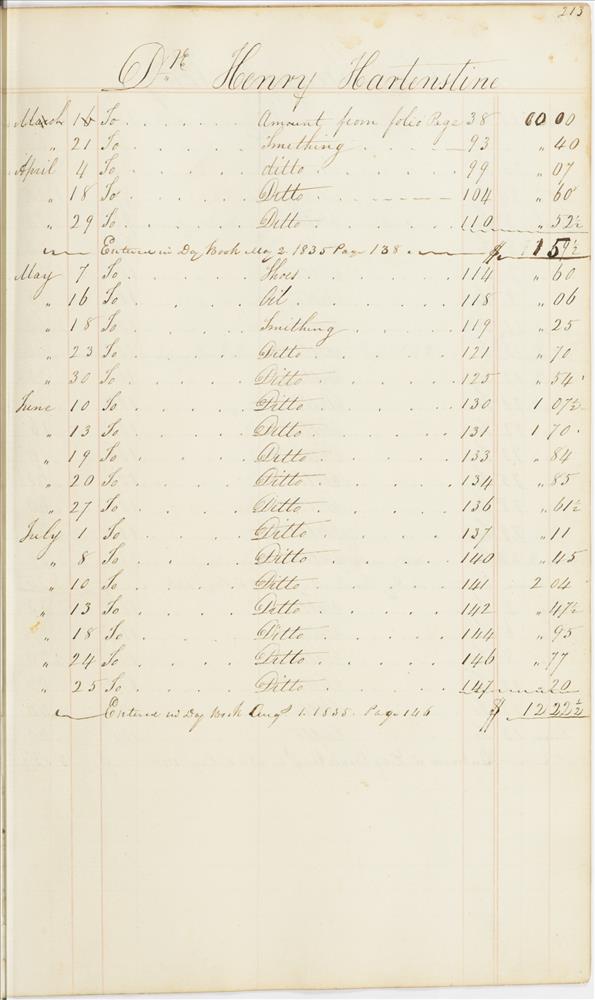 213
Dr. Henry Hartenstine
March 16 To . . . . . . Amount from folio Page 38 00 00
" 21 To . . . . . Smithing . . . . 93 " 40
April 4 To . . . . . ditto . . . . . . 99 " 07
" 18 To . . . . . Ditto . . . - - - - 104 " 60
" 29 To . . . . . Ditto . . . . . . 110 " 52½
Entered in Day Book May 2 1835 Page 138 $ 1 59½
May 7 To . . . . . Shoes . . . . . . 114 " 60
" 16 To . . . . . Oil . . . . . . 118 " 06
" 18 To . . . . . Smithing . . . . . 119 " 25
" 23 To . . . . . Ditto . . . . . . 121 " 70
" 30 To . . . . . Ditto . . . . . . 125 " 54
June 10 To . . . . . Ditto . . . . . . 130 1 07½
" 13 To . . . . . Ditto . . . . . . 131 1 70
" 19 To . . . . . Ditto . . . . . . 133 " 84
" 20 To . . . . . Ditto . . . . . . 134 " 85
" 27 To . . . . . Ditto . . . . . . 136 " 61½
July 1 To . . . . . Ditto . . . . . . 137 " 11
" 8 To . . . . . Ditto . . . . . . 140 " 45
" 10 To . . . . . Ditto . . . . . . 141 2 04
" 13 To . . . . . Ditto . . . . . . 142 " 47½
" 18 To . . . . . Ditto . . . . . . 144 " 95
" 24 To . . . . . Ditto . . . . . . 146 " 77
" 25 To . . . . . Ditto . . . . . . 147 " 20
Entered in Day Book Augst 1. 1835. Page 146 $ 12 22½